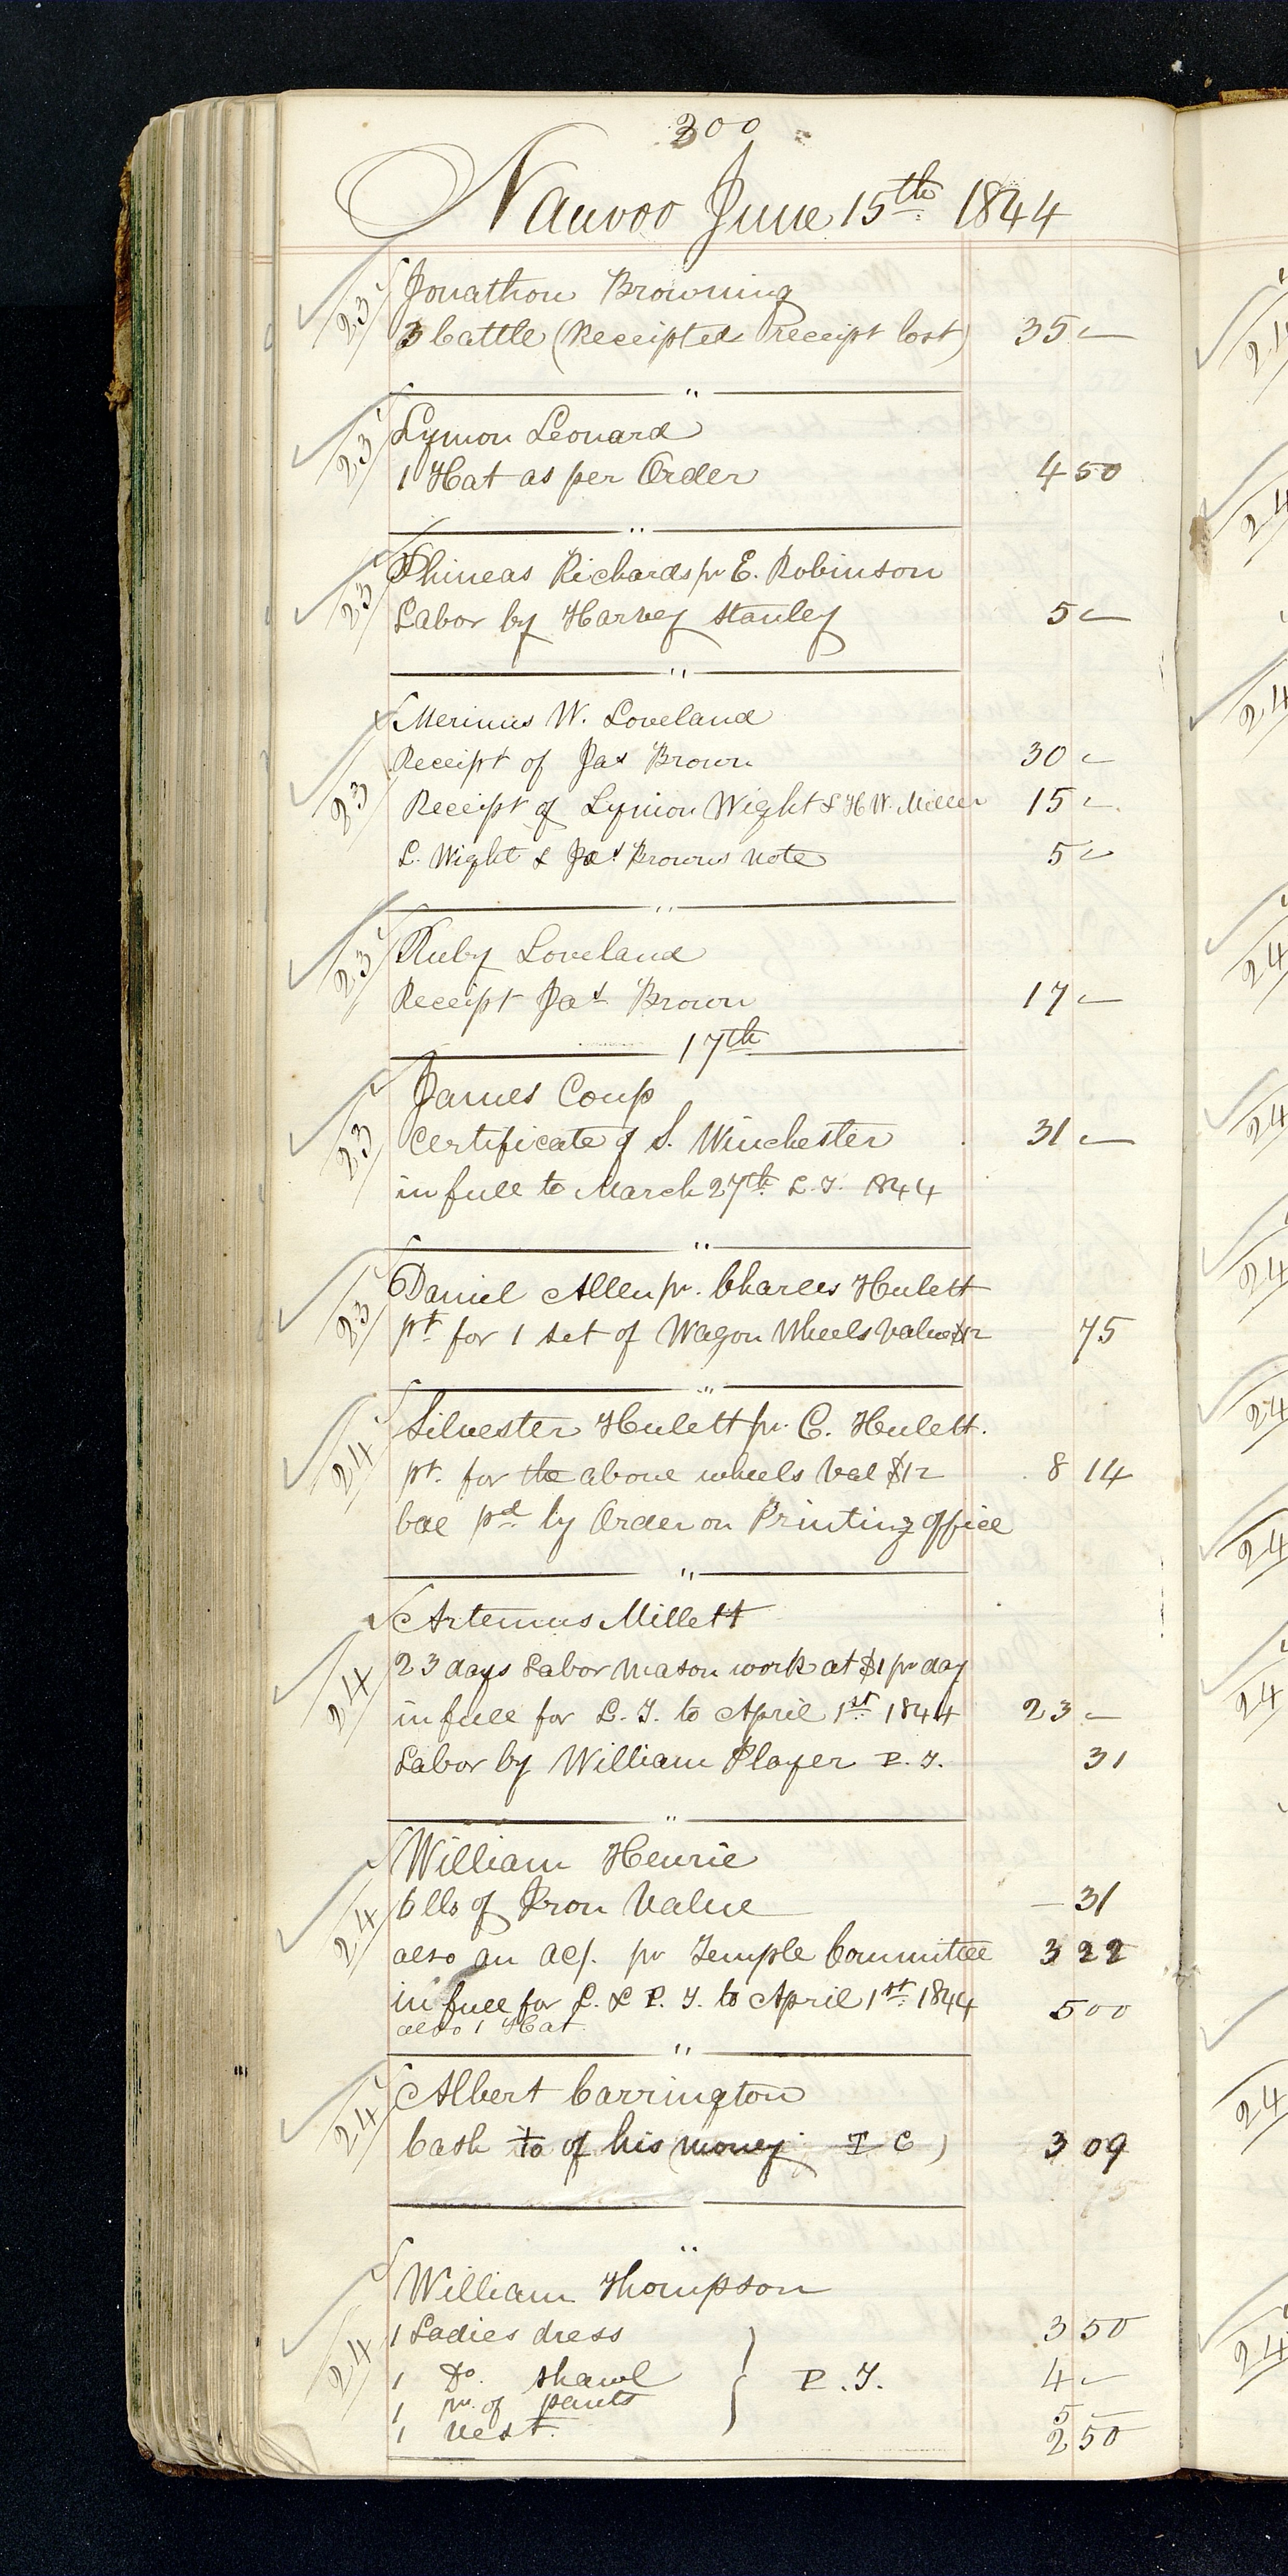 300
Nauvoo June 15th 1844
23 Jonathon Browning
3 Cattle (Receipted receipt lost) 35 —
"
23 Lymon Leonard
1 Hat as per Order 4 50
"
23 Phineas Richards pr E. Robinson
Labor by Harvey Stanley 5 —
"
Merinus W. Loveland
Receipt of Jas Brown 30 —
23 Receipt of Lymon Wight & H. W. Miller 15 —
L. Wight & Jas Browns note 5 —
"
23 Ruby Loveland
Receipt Jas Brown 17 —
17th
James Coup
23 Certificate of S. Winchester 31 —
in full to March 27th L. T. 1844
"
23 Daniel Allen pr. Charles Hulett
pt for 1 set of Wagon Wheels Value $12 75
"
24 Silvester Hulett pr C. Hulett.
pt. for the above wheels Val $12 8 14
bal pd by Order on Printing office
"
Artemus Millett
24 23 days Labor mason work at $1 pr day
in full for L. T. to April 1st 1844 23 —
Labor by William Player P. T. 31
"
William Henrie
24 6 lbs of Iron Value — 31
also an ac/. pr Temple Committee 3 22
in full for L. & P. T. to April 1st 1844 5 00
also 1 Hat
"
24 Albert Carrington
Cash to of his money T C ) 3 09
75
"
William Thompson
24 1 Ladies dress 3 50
1 Do. shawl } P. T. 4 —
1 pr. of pants 5 —
1 vest. 2 50